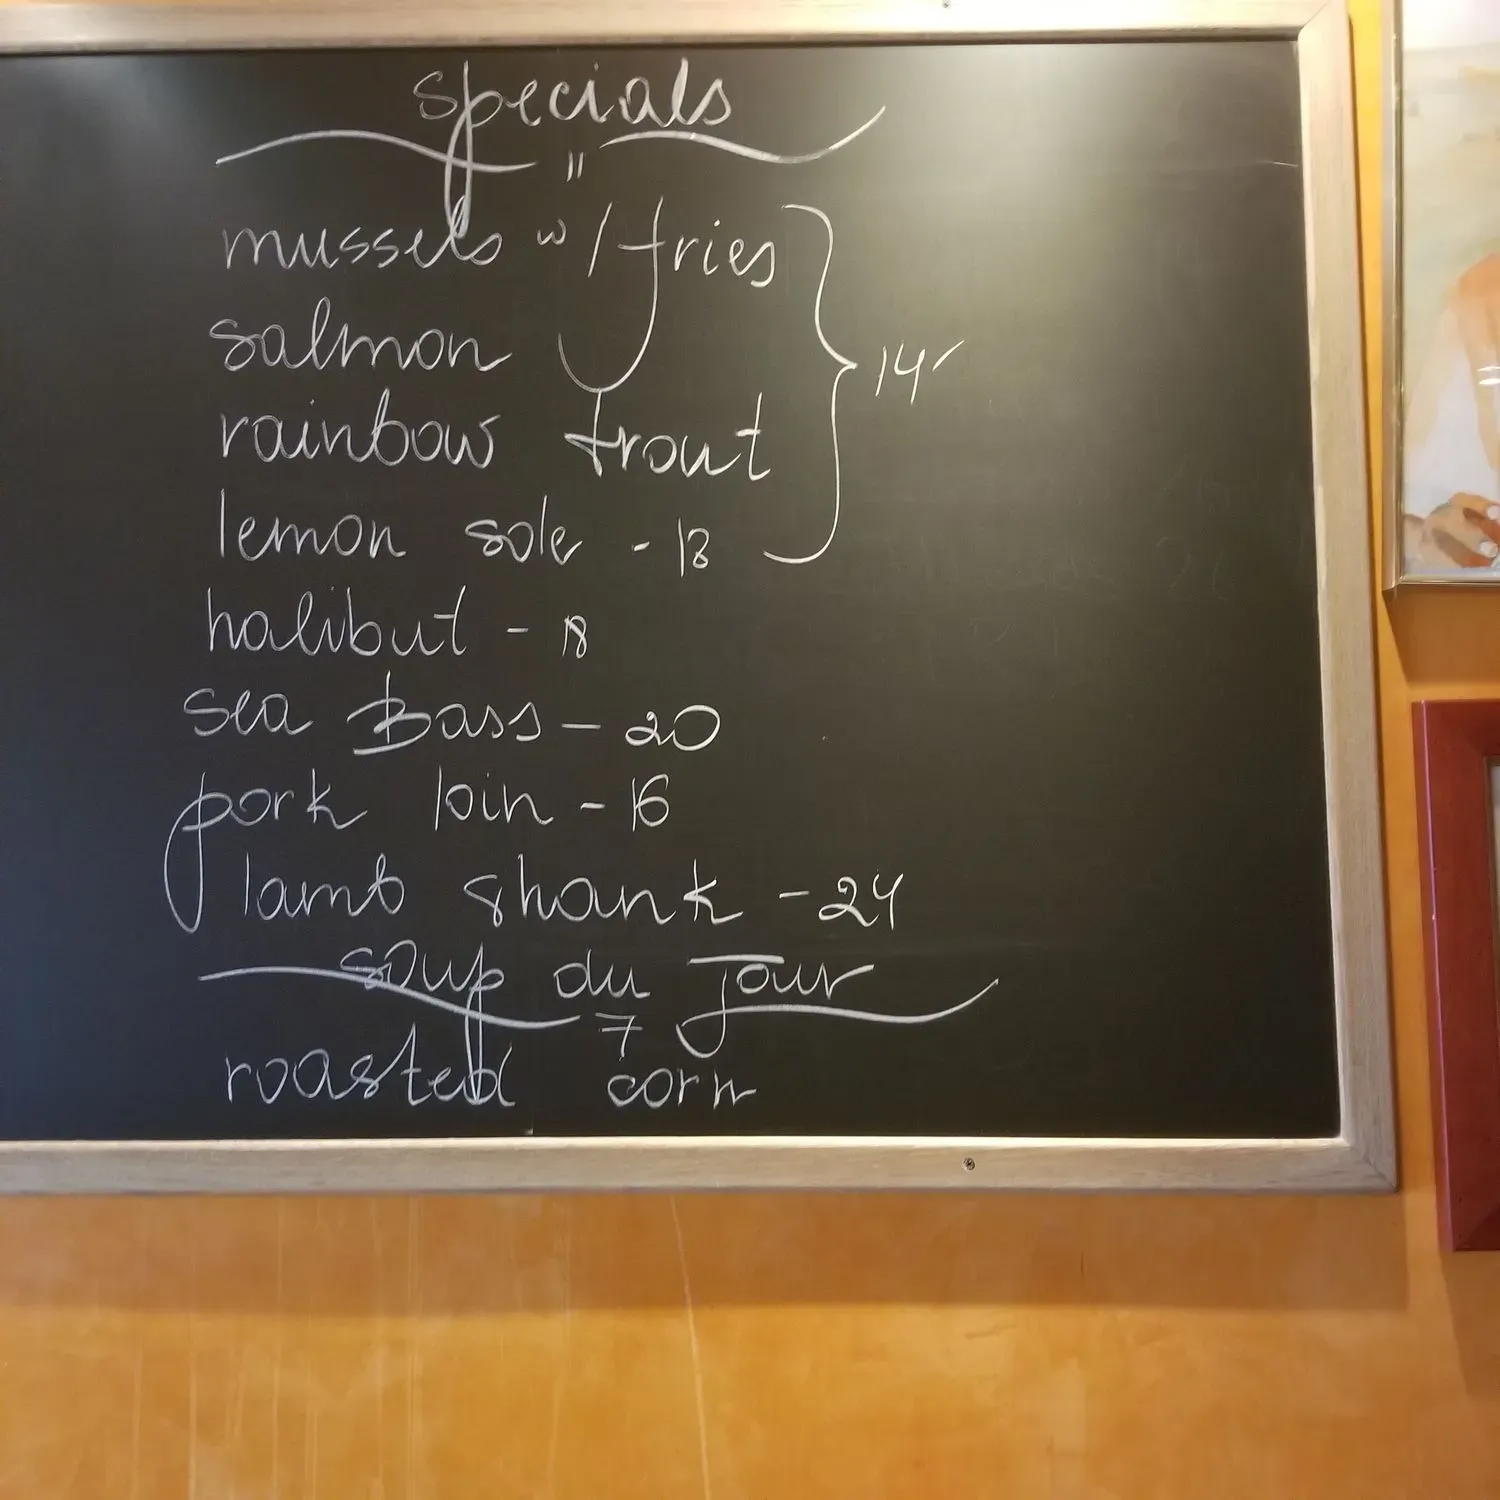 specials
"
mussels w/ fries
salmon
rainbow trout
14
lemon sole - 18
halibut - 18
sea Bass - 20
pork loin - 16
lamb shank - 24
soup du Jour
7
roasted corn